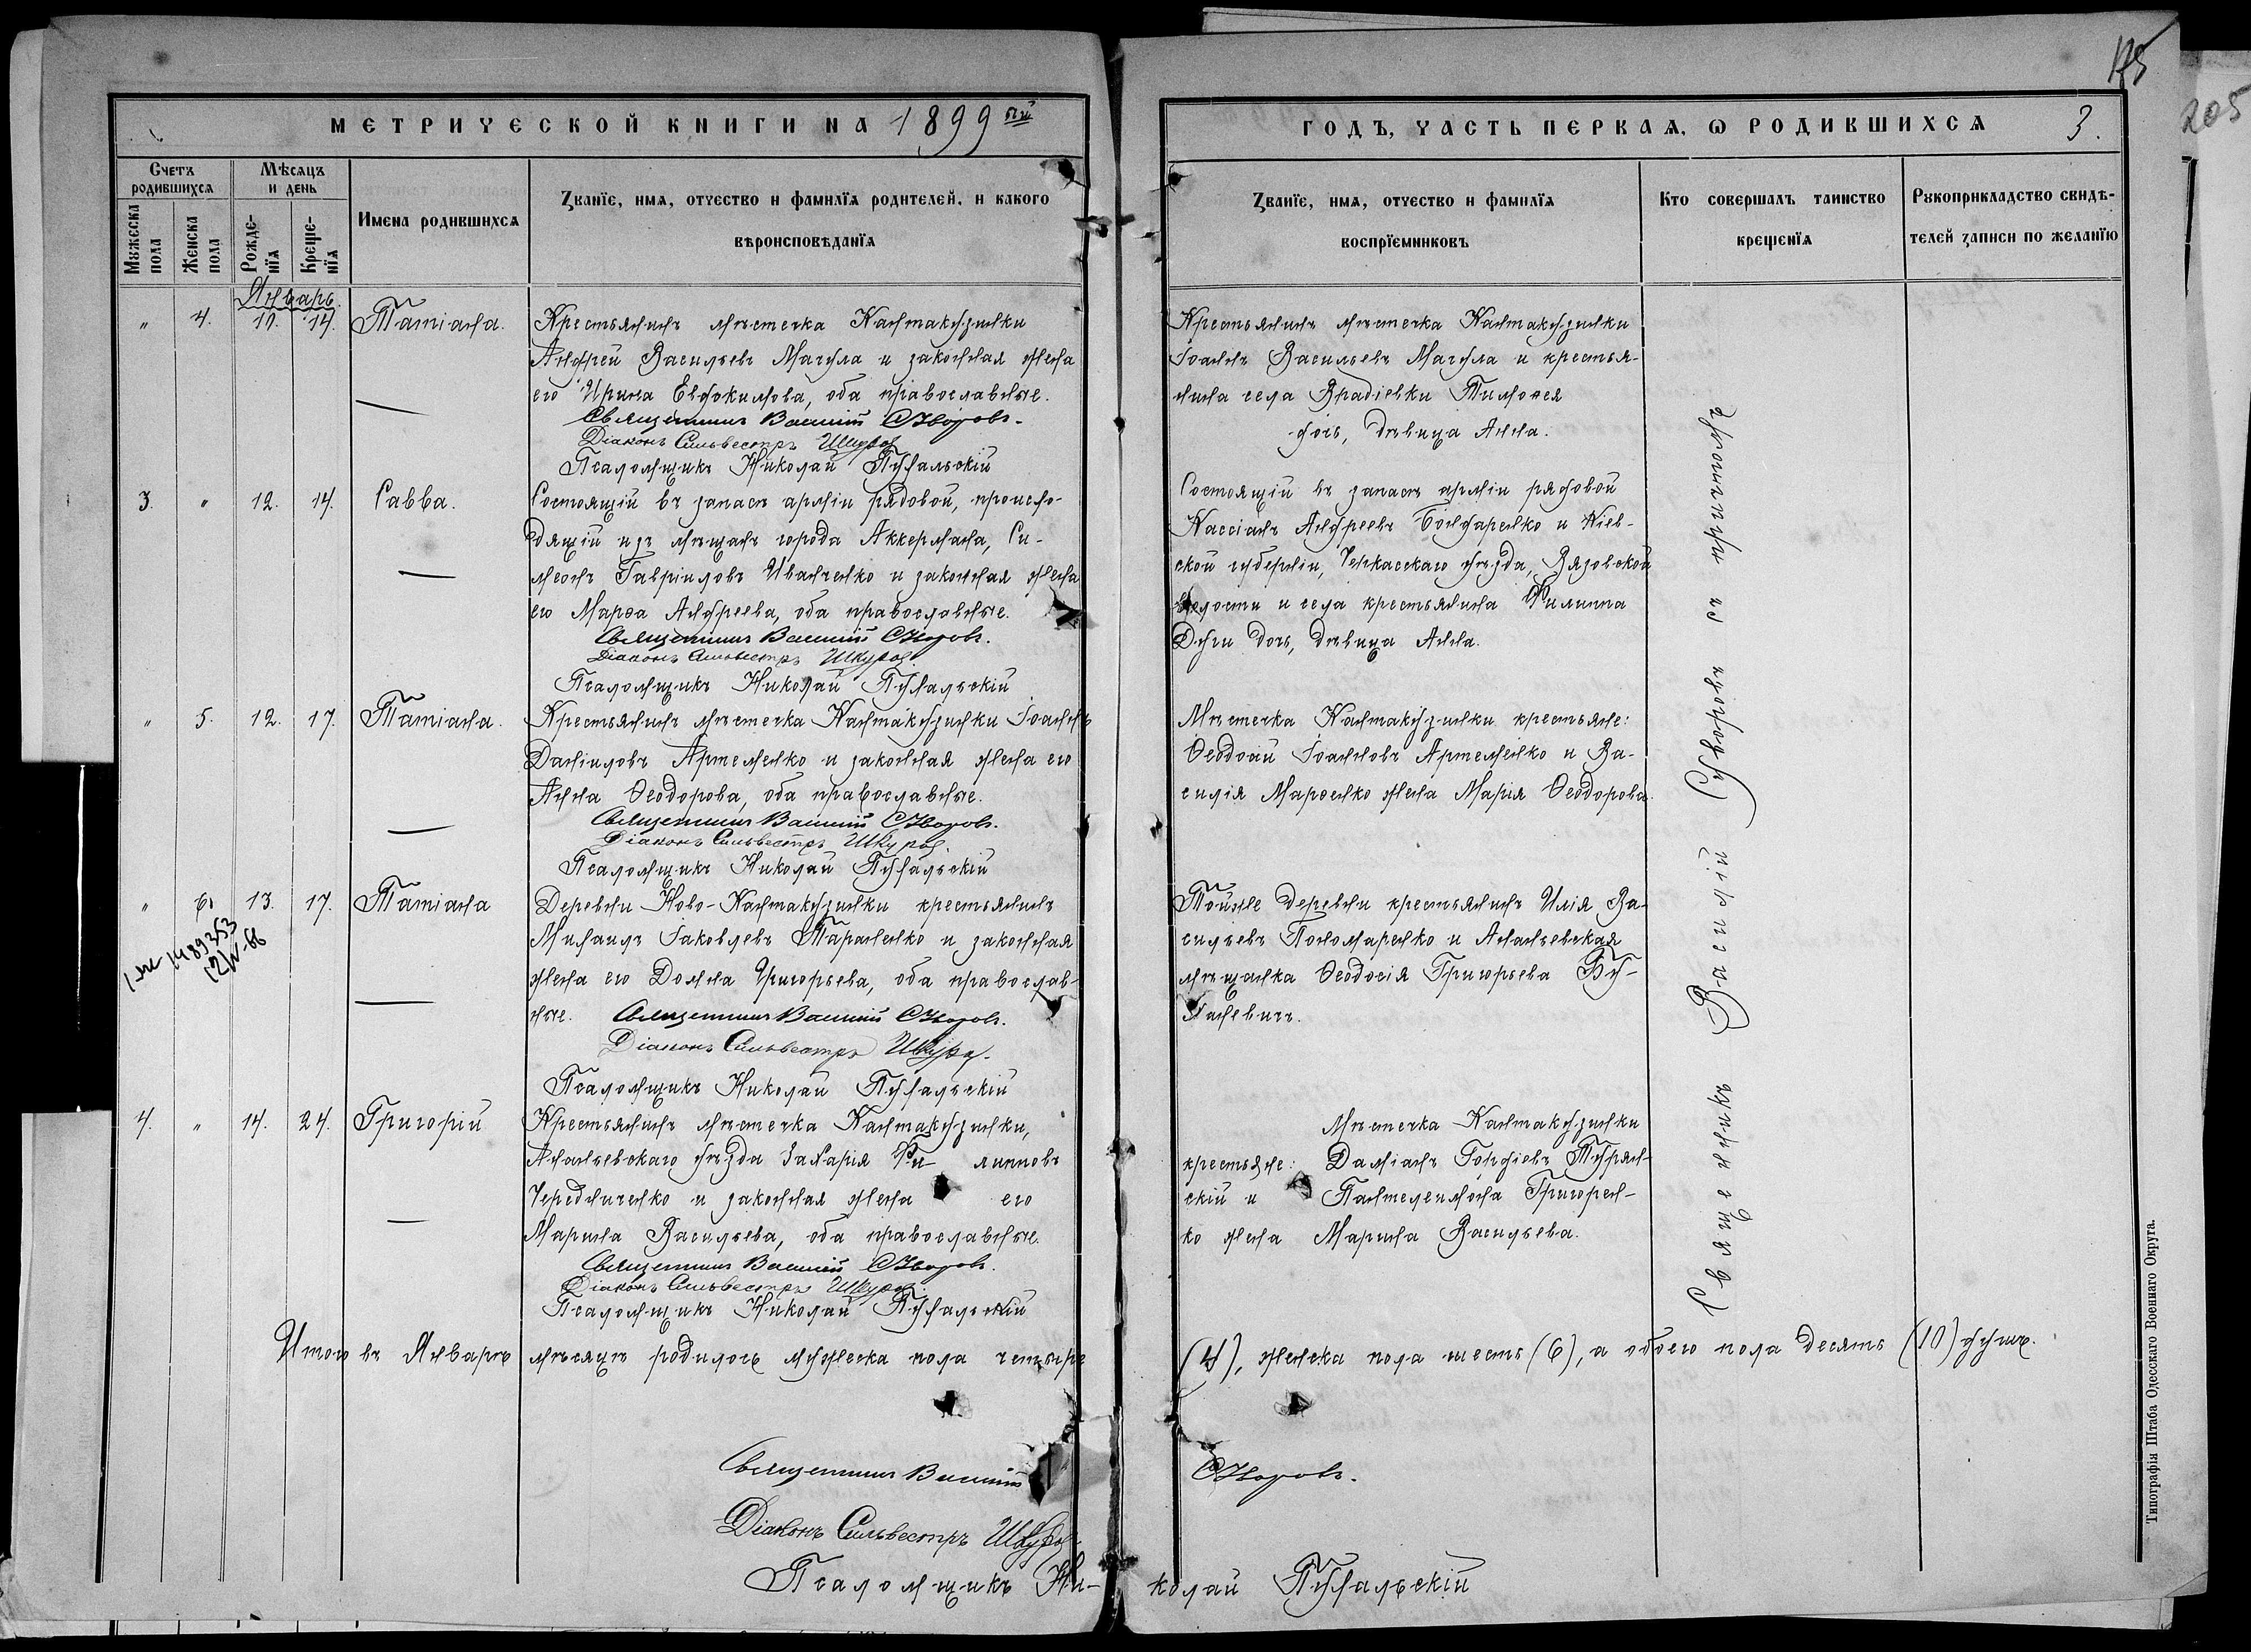 175
205
МЕТРИЧЕСКОЙ КНИГИ НА 1899ый
ГОДЪ, ЧАСТЬ ПЕРВАЯ, Ѡ РОДИВШИХСЯ 3.
Счетъ родившихся
Мѣсяцъ и день
Мужеска пола
Женска пола
Рожденїя
Крещенїя
Имена родившихся
Званїе, имя, отчество и фамилїя родителей, и какого
вѣроисповѣданїя
Званїе, имя, отчество и фамилїя
воспрїемниковъ
Кто совершалъ таинство
крещенїя
Рукоприкладство свидѣ-
телей записи по желанїю
Январь.
" 4. 10. 14. Татіана.
Крестьянинъ мѣстечка Кантакузинки
Андрей Васильевъ Мачула и законная жена
его Ирина Евдокимова, оба православные.
Священникъ Василій Суворовъ.
Діаконъ Сильвестръ Шкура
Псаломщикъ Николай Пухальскій
Крестьянинъ мѣстечка Кантакузинки
Іоаннъ Васильевъ Мачула и крестья-
нина села Врадіевки Тимофея
дочь, дѣвица Анна.
3. " 12. 14. Савва.
Состоящій въ запасѣ арміи рядовой, происхо-
дящій изъ мѣщанъ города Аккермана, Си-
меонъ Гавріиловъ Иванченко и законная жена
его Марѳа Андреева, оба православные.
Священникъ Василій Суворовъ.
Діаконъ Сильвестръ Шкура
Псаломщикъ Николай Пухальскій
Состоящій въ запасѣ арміи рядовой
Кассіанъ Андреевъ Бондаренко и Кіев-
ской губерніи, Черкасскаго уѣзда, Вязовской
волости и села крестьянина Филиппа
Дуги дочь, дѣвица Анна.
" 5. 12. 17. Татіана.
Крестьянинъ мѣстечка Кантакузинки Іоаннъ
Даніиловъ Артеменко и законная жена его
Анна Ѳеодорова, оба православные.
Священникъ Василій Суворовъ.
Діаконъ Сильвестръ Шкура
Псаломщикъ Николай Пухальскій
Мѣстечка Кантакузинки крестьяне:
Іоанновъ Артеменко и Ва-
силія Марченко жена Марія Ѳеодорова.
" 6. 13. 17. Татіана
1489253
Деревни Ново-Кантакузинки крестьянинъ
Михаилъ Іаковлевъ Тараненко и законная
жена его Домна Григорьева, оба православ-
ные. Священникъ Василій Суворовъ.
Діаконъ Сильвестръ Шкура
Псаломщикъ Николай Пухальскій
Тойже деревни крестьянинъ Илія Ва-
сильевъ Пономаренко и Ананьевская
мѣщанка Ѳеодосія Григорьева Бу-
4. " 14. 24. Григорій
Крестьянинъ мѣстечка Кантакузинки,
Ананьевскаго уѣзда Захарія Фи- липповъ
Чередниченко и законная жена его
Марина Васильева, оба православные.
Священникъ Василій Суворовъ.
Діаконъ Сильвестръ Шкура
Псаломщикъ Николай Пухальскій
Мѣстечка Кантакузинки
крестьяне: Даміанъ Гордіевъ Турян-
скій и Пантелеимона Григорен-
ко жена Марина Васильева.
Священникъ Василій Суворовъ съ причтомъ
Итого въ Январѣ мѣсяцѣ родилось мужеска пола четыре
(4), женска пола шесть (6), а обоего пола десять (10) душъ.
Священникъ Василій Суворовъ.
Діаконъ Сильвестръ Шкура
Псаломщикъ Ни- колай Пухальскій
Типографія Штаба Одесскаго Военнаго Округа.